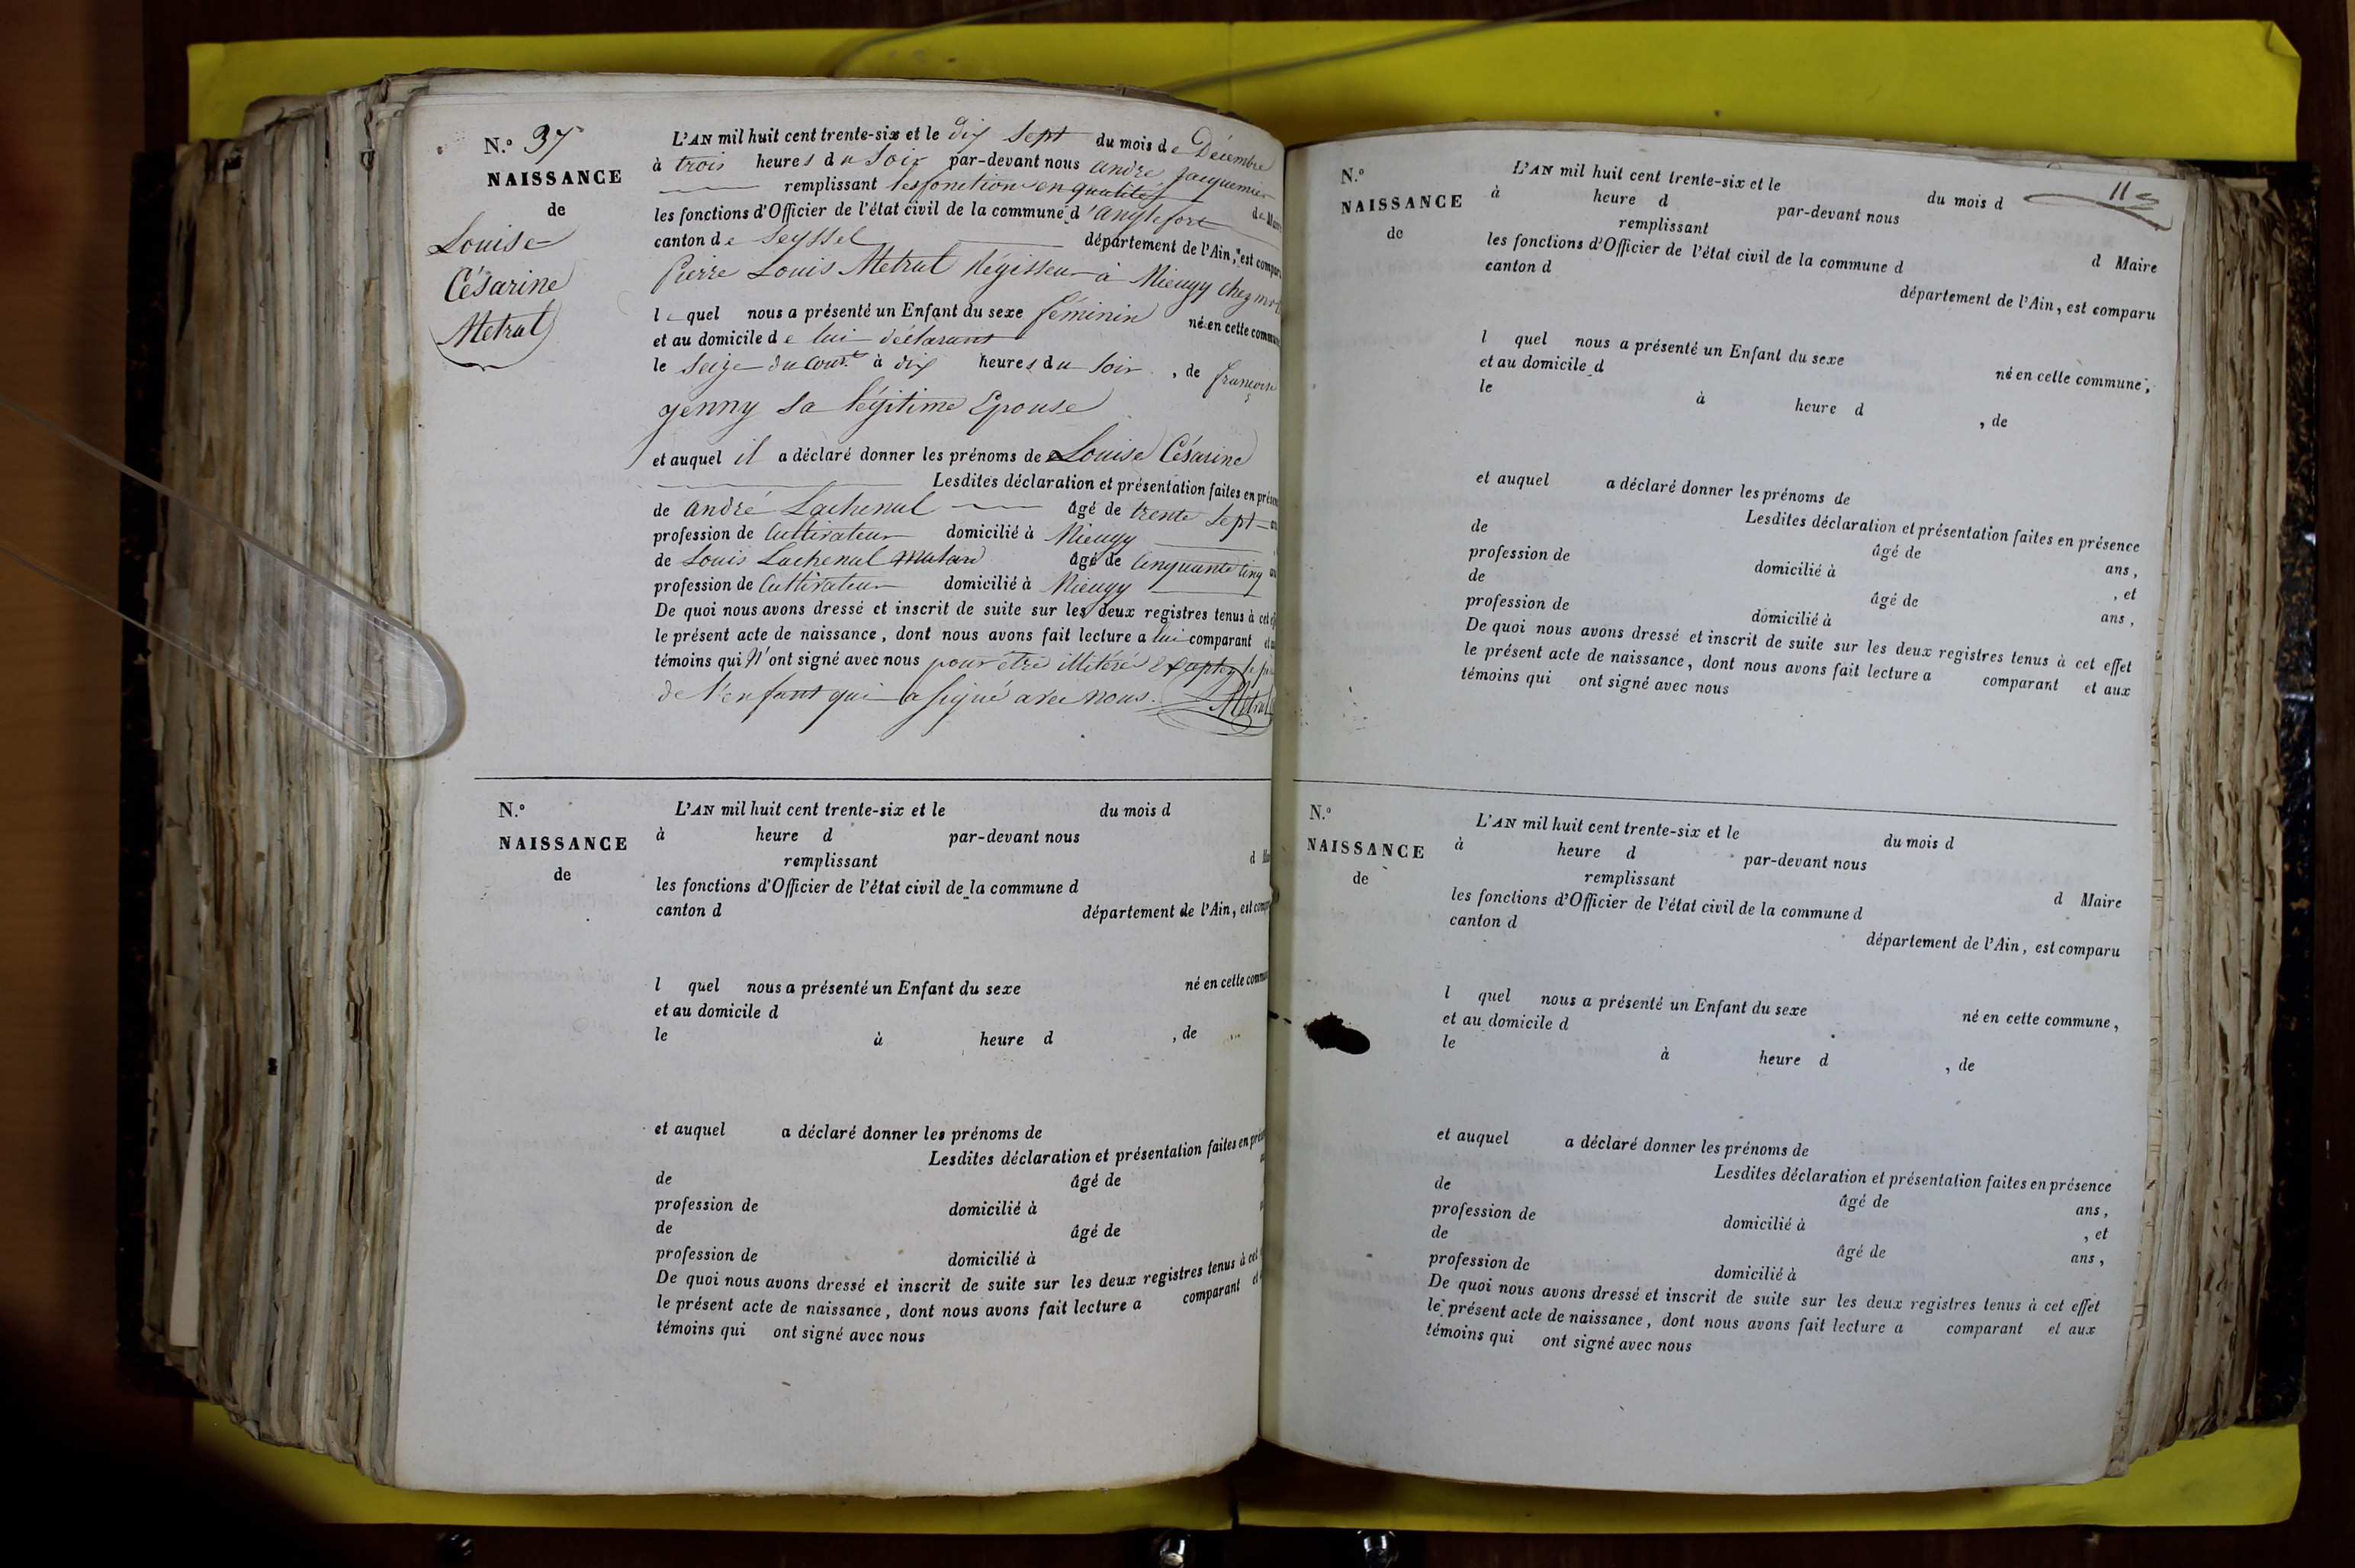 N.º 37
NAISSANCE
de
Louise
Césarine
Metral
L'AN mil huit cent trente-six et le dix sept du mois de Décembre
à trois heures du Soir par-devant nous andré jacquemier
remplissant les fonction en qualité
les fonctions d'Officier de l'état civil de la commune d'anglefort de
canton de Seyssel département de l'Ain, est
Pierre Louis Metral Régisseur à Mieugy chez
lequel nous a présenté un Enfant du sexe féminin né en cette
et au domicile de lui déclarant
le Seize du cour.t à dix heures du Soir, de
genny Sa légitime Epouse
et auquel il a déclaré donner les prénoms de Louise Césarine
Lesdites déclaration et présentation faites en
de andré Lachenal âgé de trente Sept
profession de Cultivateur domicilié à Mieugy
de Louis Lachenal âgé de Cinquante Cinq
profession de Cultivateur domicilié à Mieugy
De quoi nous avons dressé et inscrit de suite sur les deux registres tenus à cet
le présent acte de naissance, dont nous avons fait lecture a lui comparant
témoins qui N'ont signé avec nous pour être illitéré Excepter le
de l'enfant qui a signé avec nous. Metral
N.º
NAISSANCE
de
L'AN mil huit cent trente-six et le du mois d
à heure d par-devant nous
remplissant d
les fonctions d'Officier de l'état civil de la commune d
canton d département de l'Ain, est
l quel nous a présenté un Enfant du sexe né en cette
et au domicile d
le à heure d , de
et auquel a déclaré donner les prénoms de
Lesdites déclaration et présentation faites en
de âgé de
profession de domicilié à
de âgé de
profession de domicilié à
De quoi nous avons dressé et inscrit de suite sur les deux registres tenus à cet
le présent acte de naissance, dont nous avons fait lecture a comparant
témoins qui ont signé avec nous
N.º
NAISSANCE
de
L'AN mil huit cent trente-six et le du mois d
à heure d par-devant nous
remplissant d Maire
les fonctions d'Officier de l'état civil de la commune d
canton d département de l'Ain, est comparu
l quel nous a présenté un Enfant du sexe né en cette commune,
et au domicile d
le à heure d , de
et auquel a déclaré donner les prénoms de
Lesdites déclaration et présentation faites en présence
de âgé de ans,
profession de domicilié à , et
de âgé de ans,
profession de domicilié à
De quoi nous avons dressé et inscrit de suite sur les deux registres tenus à cet effet
le présent acte de naissance, dont nous avons fait lecture a comparant et aux
témoins qui ont signé avec nous
N.º
NAISSANCE
de
L'AN mil huit cent trente-six et le du mois d
à heure d par-devant nous
remplissant d Maire
les fonctions d'Officier de l'état civil de la commune d
canton d département de l'Ain, est comparu
l quel nous a présenté un Enfant du sexe né en cette commune,
et au domicile d
le à heure d , de
et auquel a déclaré donner les prénoms de
Lesdites déclaration et présentation faites en présence
de âgé de ans,
profession de domicilié à , et
de âgé de ans,
profession de domicilié à
De quoi nous avons dressé et inscrit de suite sur les deux registres tenus à cet effet
le présent acte de naissance, dont nous avons fait lecture a comparant et aux
témoins qui ont signé avec nous